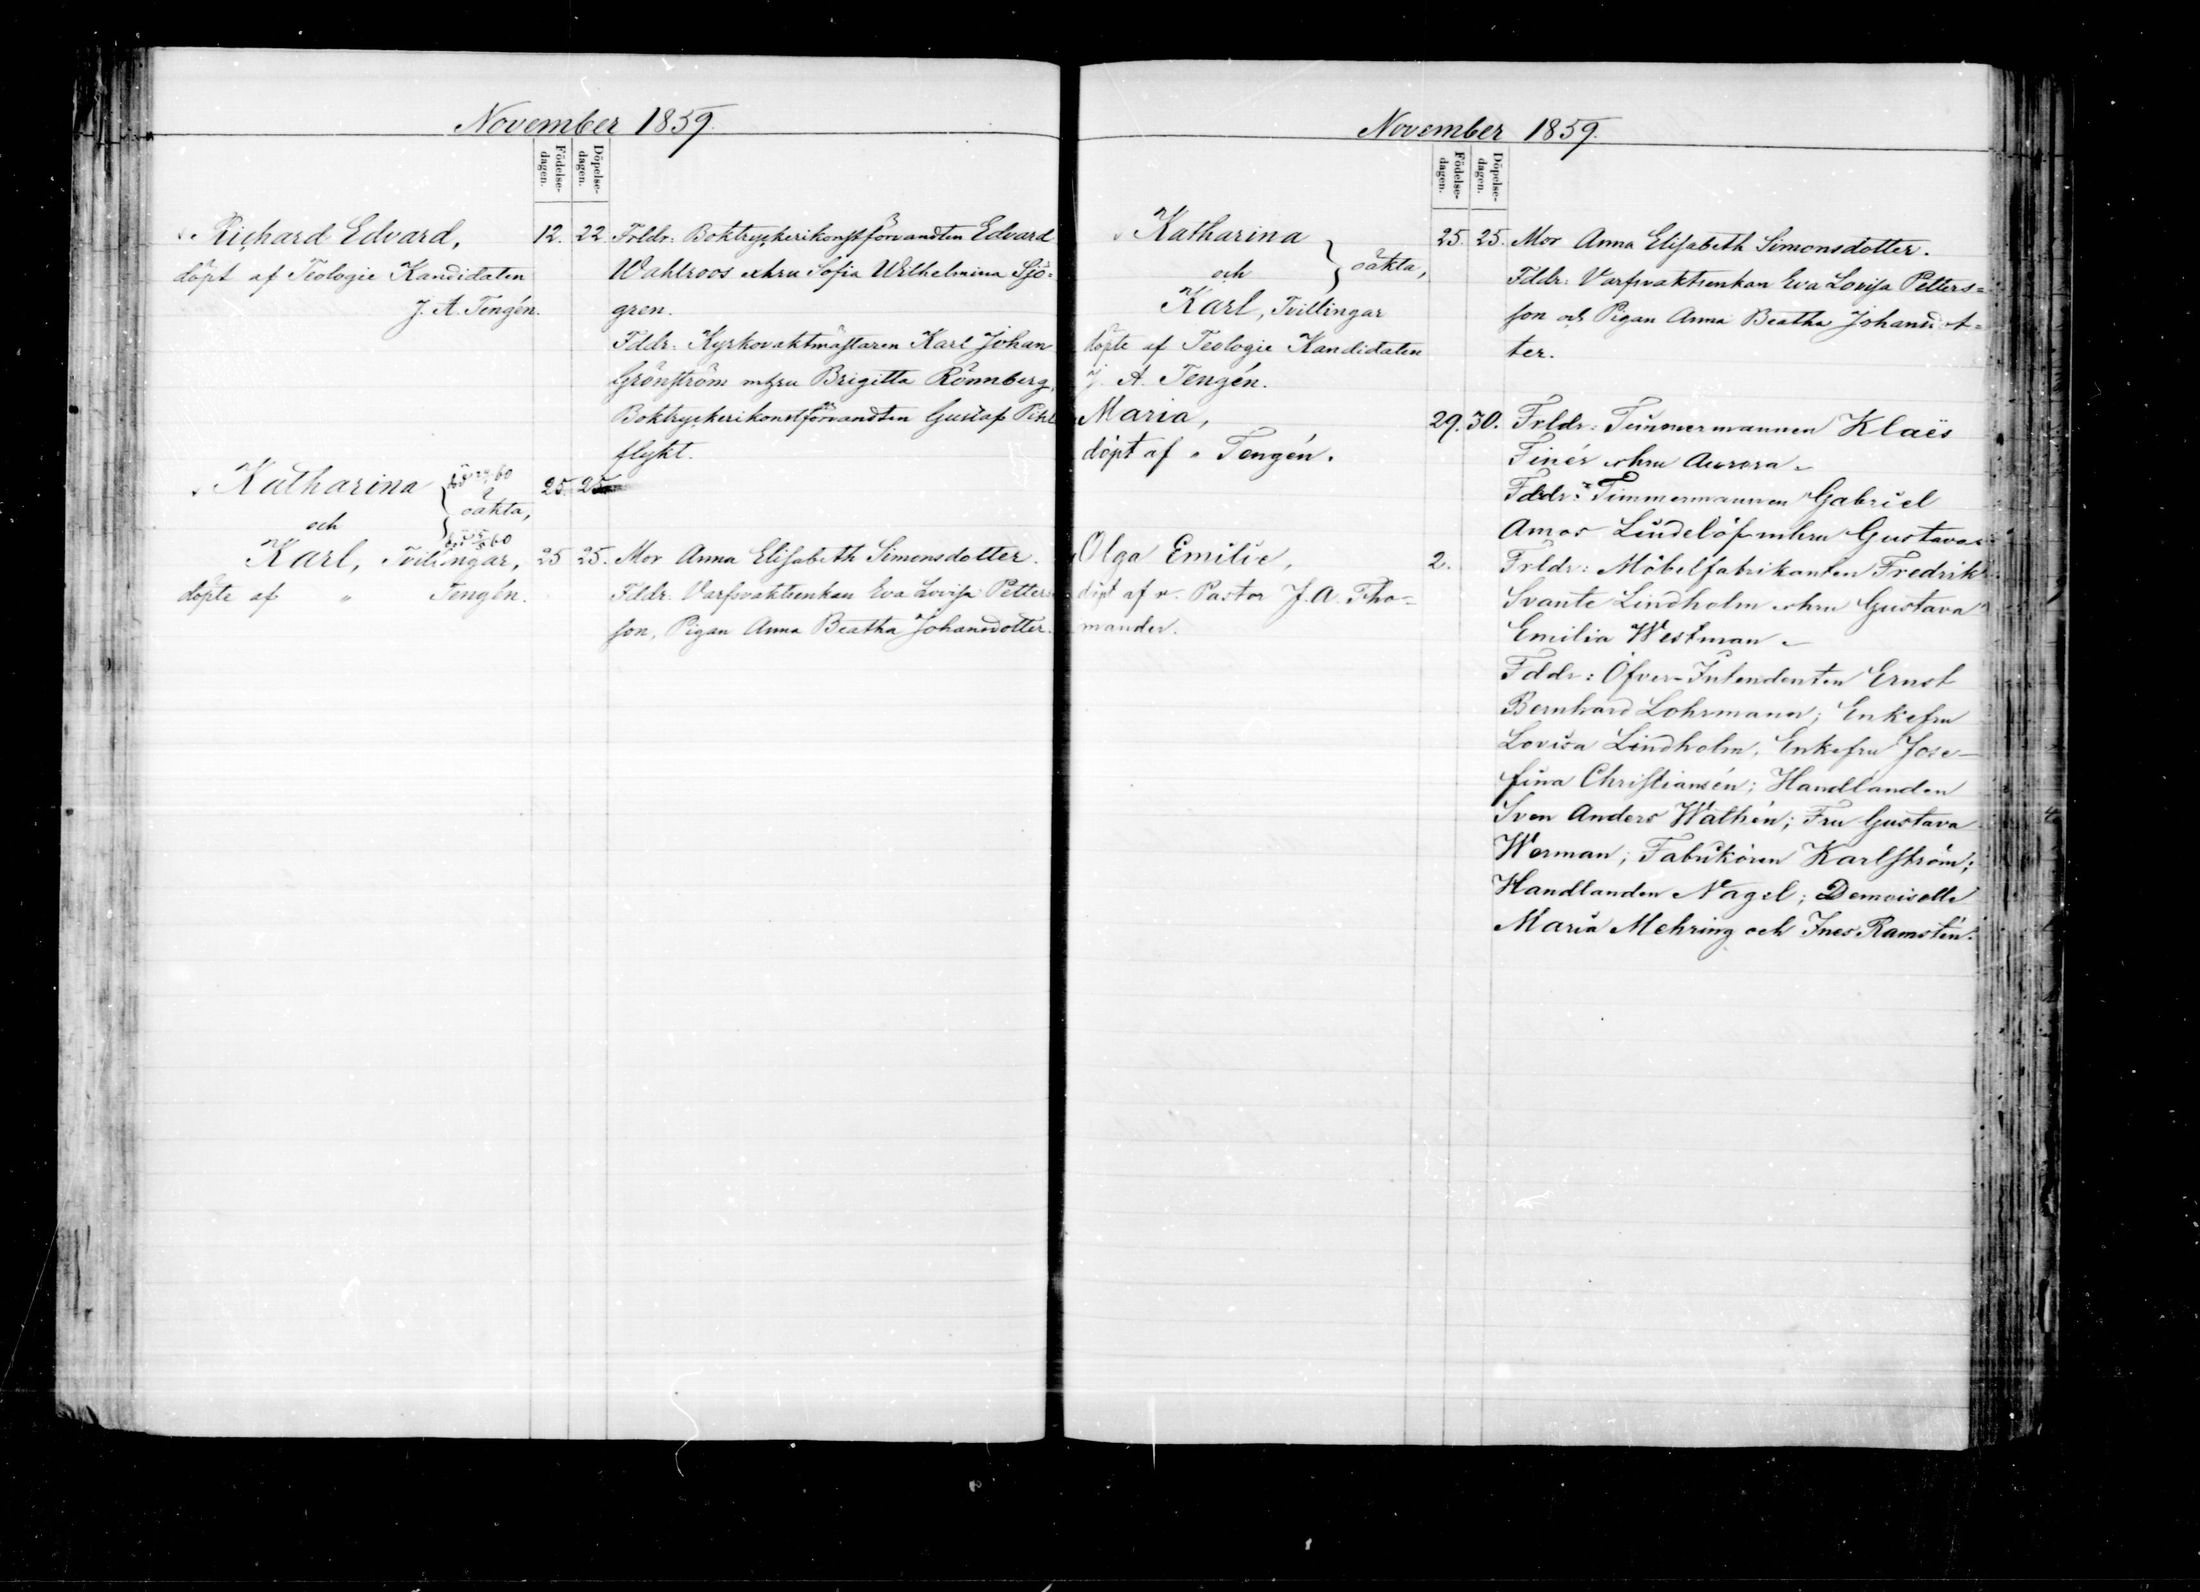 November 1859.
Födelse-
dagen.
Döpelse-
dagen.
Richard Edvard,
döpt af Teologie Kandidaten
J. A. Tengén.
12. 22. Frldr: Boktryckerikonstförvandten Edvard
Wahlroos o hru Sofia Wilhelmina Sjö=
gren.
Fddr: Kyrkovaktmästaren Karl Johan
Grönström m hru Brigitta Rönnberg,
Boktryckerikonstförvandten Gustaf
flykt.
Katharina 25. 25
och oäkta,
Karl, Tvillingar,
döpte af " Tengén.
25 25. Mor Anna Elisabeth Simonsdotter.
Fddr. Varfsvaktsenkan Eva Lovisa Petters=
son, Pigan Anna Beatha Johansdotter.
November 1859.
Födelse-
dagen.
Döpelse-
dagen.
Katharina
och oäkta,
Karl, Tvillingar
döpte af Teologie Kandidaten
J. A. Tengén.
25. 25. Mor Anna Elisabeth Simonsdotter.
Fddr: Varfsvaktsenkan Eva Lovisa Petters=
son och Pigan Anna Beatha Johansdot=
ter.
Maria,
döpt af " Tengén.
29. 30. Frldr: Timmermannen Klaës
Finér o hru Aurora
Fddr: Timmermannen Gabriel
Amos Lindelöf m hru Gustava
Olga Emilie,
döpt af v. Pastor J. A. Tho=
mander.
2. Frldr: Möbelfabrikanten Fredrik
Svante Lindholm o hru Gustava
Emilia Westman
Fddr: Öfver-Intendenten Ernst
Bernhard Lohrmann; Enkefru
Lovisa Lindholm, Enkefru Jose-
fina Christiansén; Handlanden
Sven Anders Wathén; Fru Gustava
Werman; Fabrikören Karlström;
Handlanden Nagel; Demoiselle
Maria Mehring och Ines Ramstén.